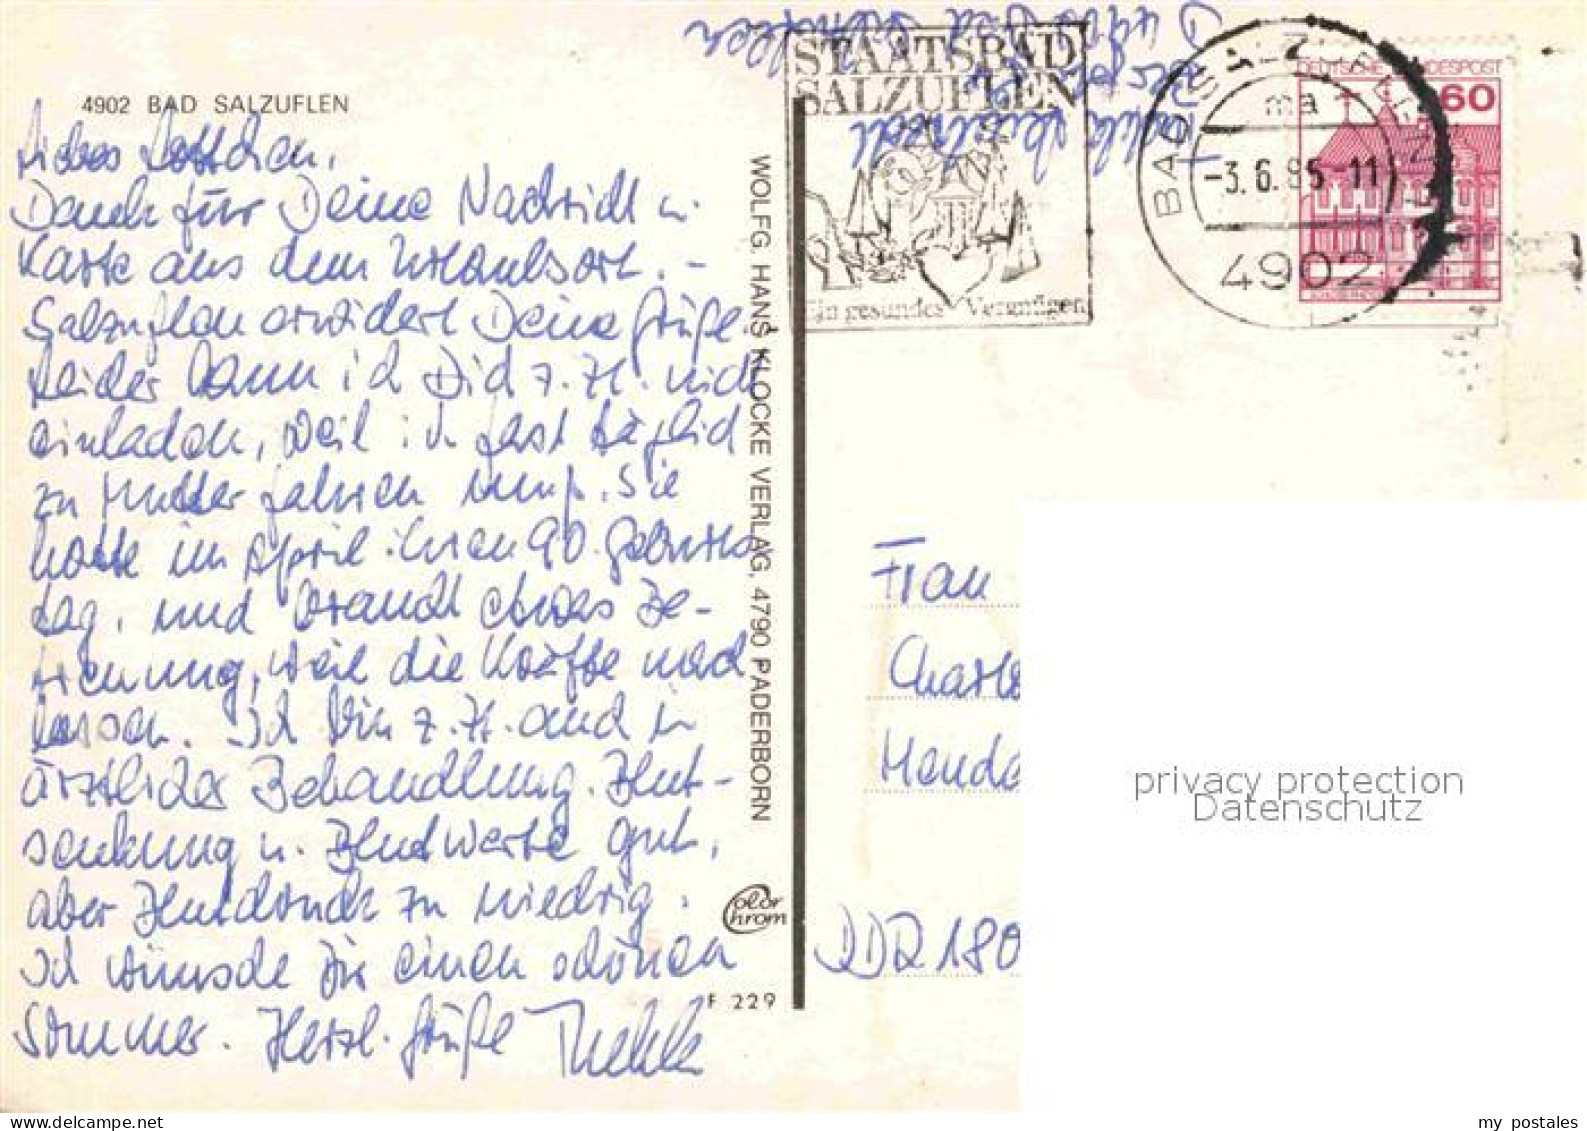 4902 BAD SALZUFLEN
Liebes Lottchen,
Dank für Deine Nachricht u.
Karte aus dem Urlaubsort. –
Salzuflen erwidert Deine Grüße.
Leider kann ich Dich z. Zt. nicht
einladen, weil ich fast täglich
zu Mutter fahren muß. Sie
hatte im April ihren 90. Geburts-
tag, und braucht etwas Be-
treuung, weil die Kräfte nach-
lassen. Ich bin z. Zt. auch in
ärztlicher Behandlung. Blut-
senkung u. Blutwerte gut,
aber Blutdruck zu niedrig.
Ich wünsche Dir einen schönen
Sommer. Herzl. Grüße
WOLFG. HANS KLOCKE VERLAG, 4790 PADERBORN
Color
Chrom
F 229
STAATSBAD
SALZUFLEN
Ein gesundes Vergnügen
BAD SALZUFLEN
ma
-3.6.85-11
4902
DEUTSCHE BUNDESPOST
60
Frau
Charlo
DDR 180
privacy protection
Datenschutz
my postales